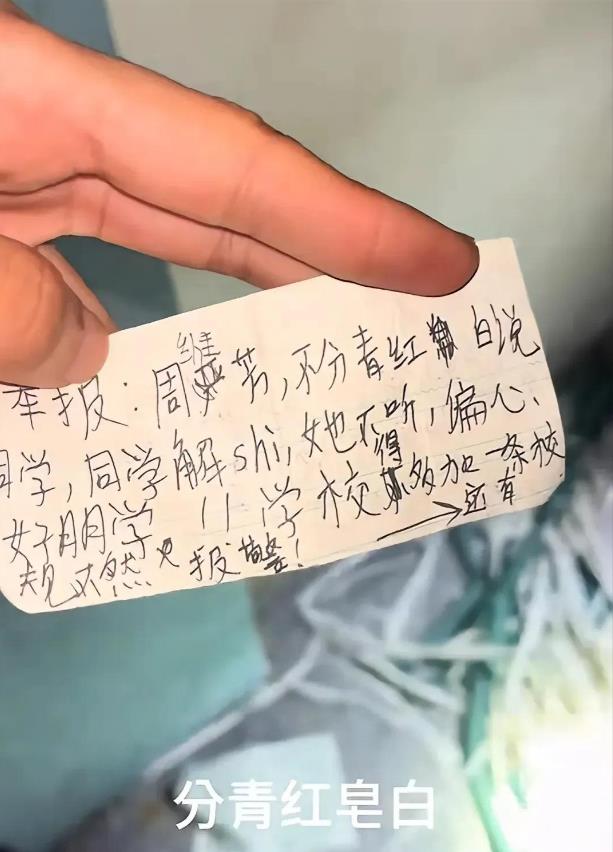 举报:周维芳,不分青红 白说
同学,同学解shi,她不听,偏心、
好朋学 11学校得多加一条校
规不然 报警! →还有
分青红皂白